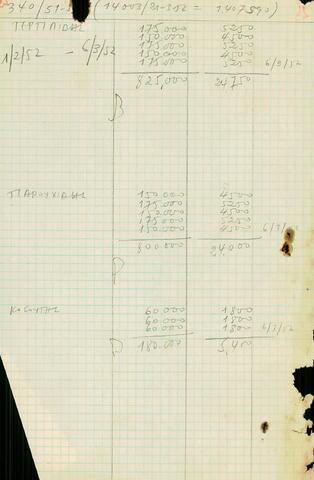 340/51-5 (14003/31-3-52 = 1407590)
ΤΕΡΠΛΙΔΗΣ 175.000 5250
150.000 4500
1/2/52 - 6/3/52 175.000 5250
150.000 4500
175.000 5250 6/3/52
825,000 24750
150.000 4500
175.000 5250
150.000 4500
175.000 5250
150.000 4500 6/3/
800.000 24.000
60.000 1800
60.000 1800
60.000 1800 6/3/52
180.000 5,400